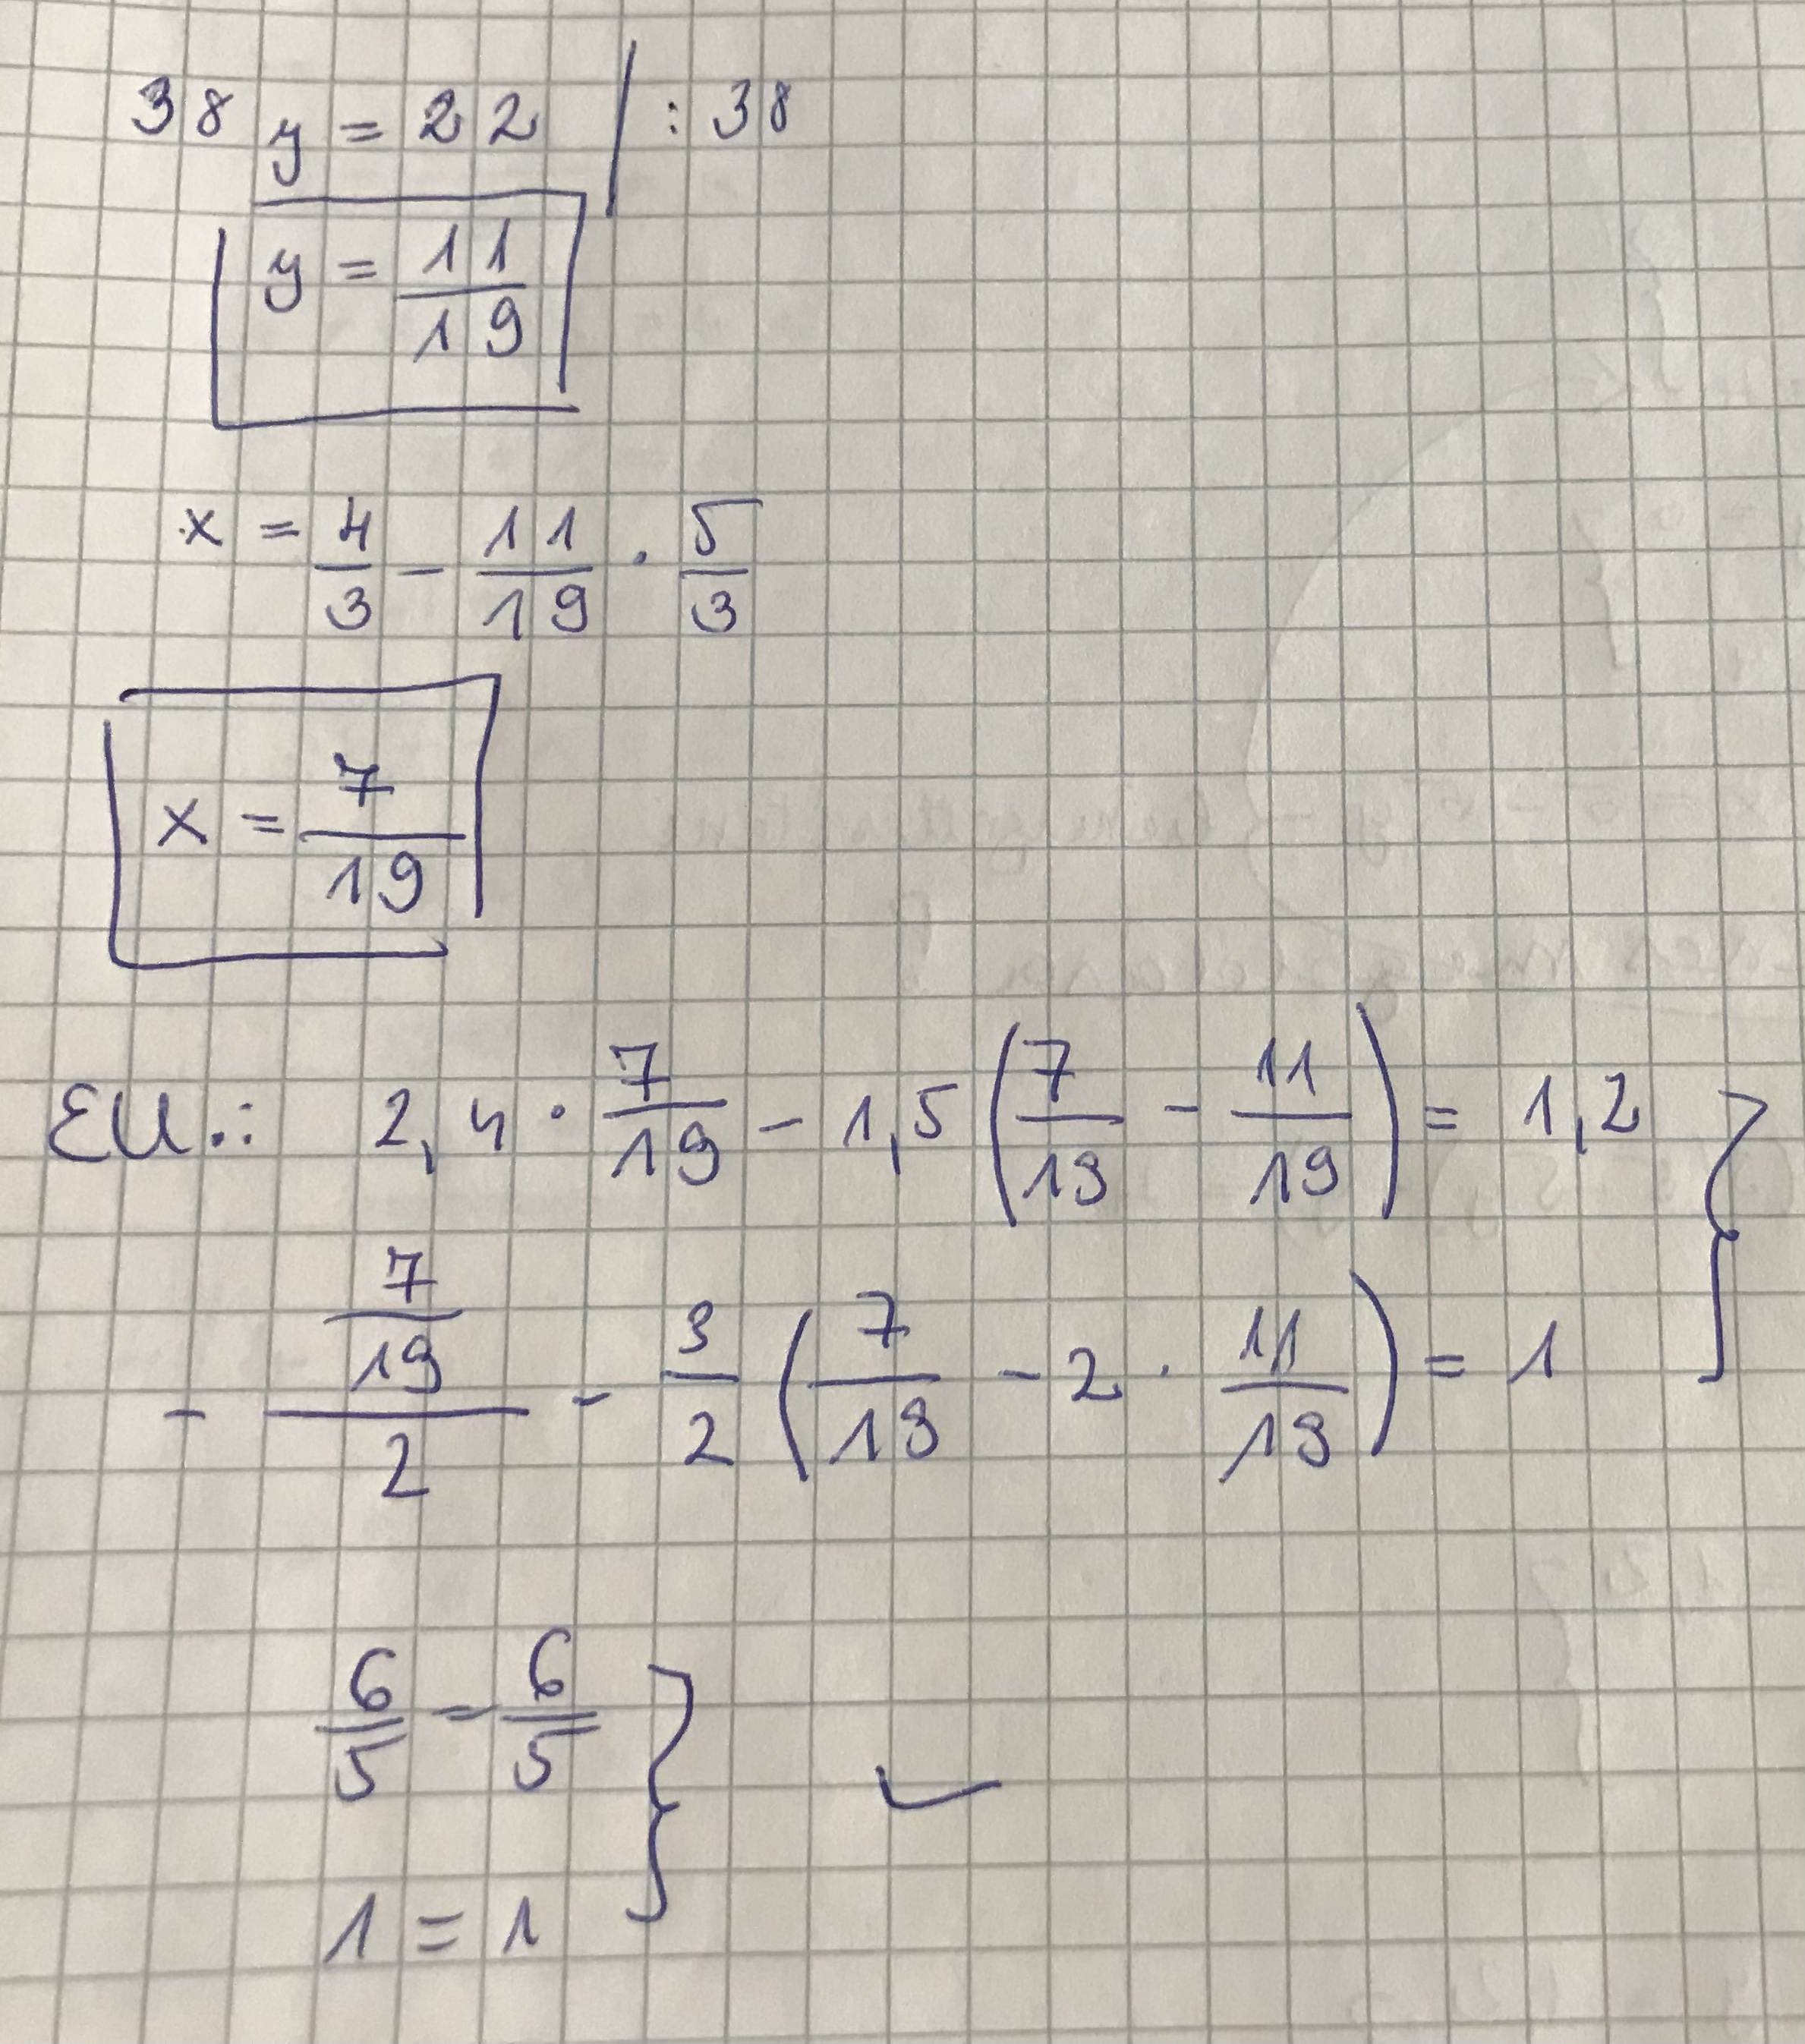 38 y = 22 | : 38
y = 11/19
x = 4/3 - 11/19 · 5/3
x = 7/19
Ell.: 2,4 · 7/19 - 1,5 (7/19 - 11/19) = 1,2 }
- (7/19)/2 - 3/2 (7/19 - 2 · 11/19) = 1
6/5 = 6/5 } ✓
1 = 1